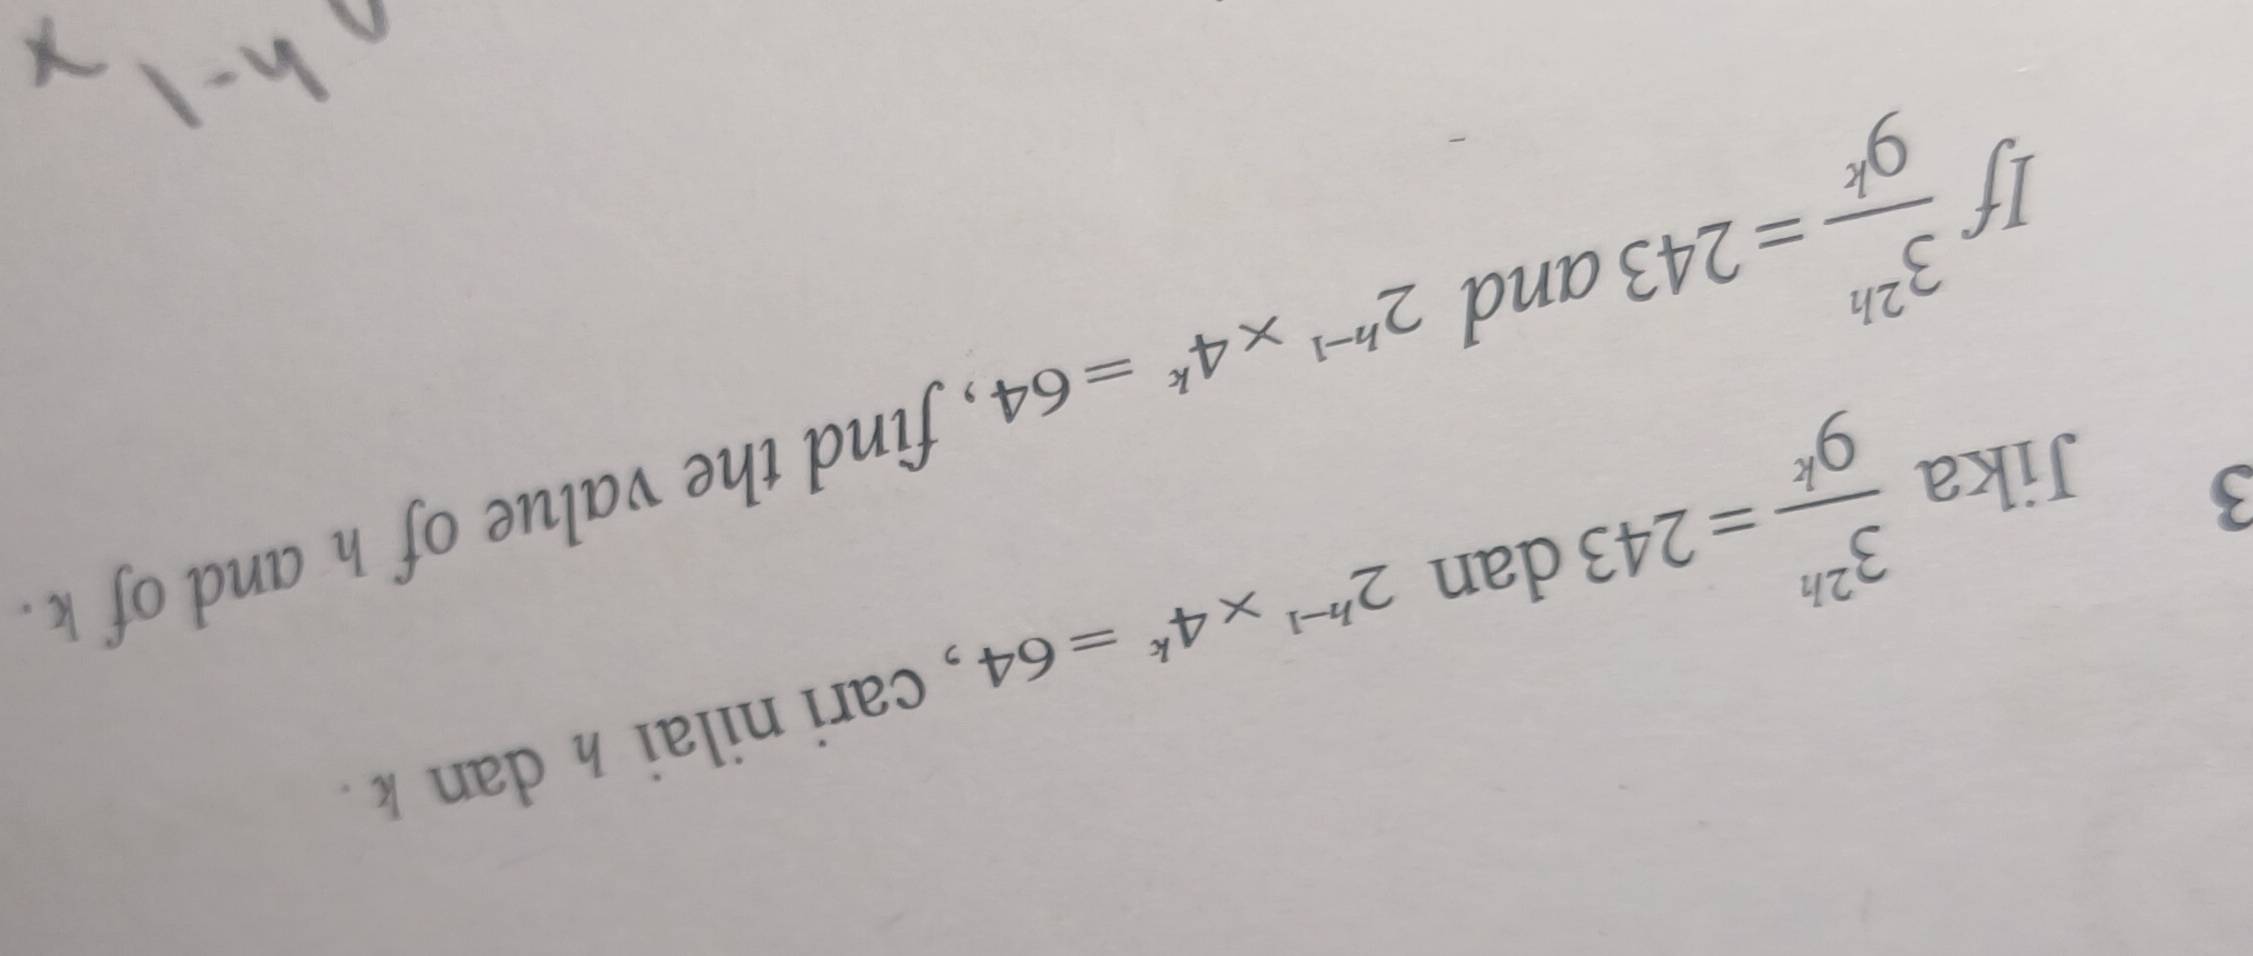 3 Jika 3^{2h}/9^k = 243 dan 2^{h-1} × 4^k = 64, cari nilai h dan k.
If 3^{2h}/9^k = 243 and 2^{h-1} × 4^k = 64, find the value of h and of k.
h-1 x